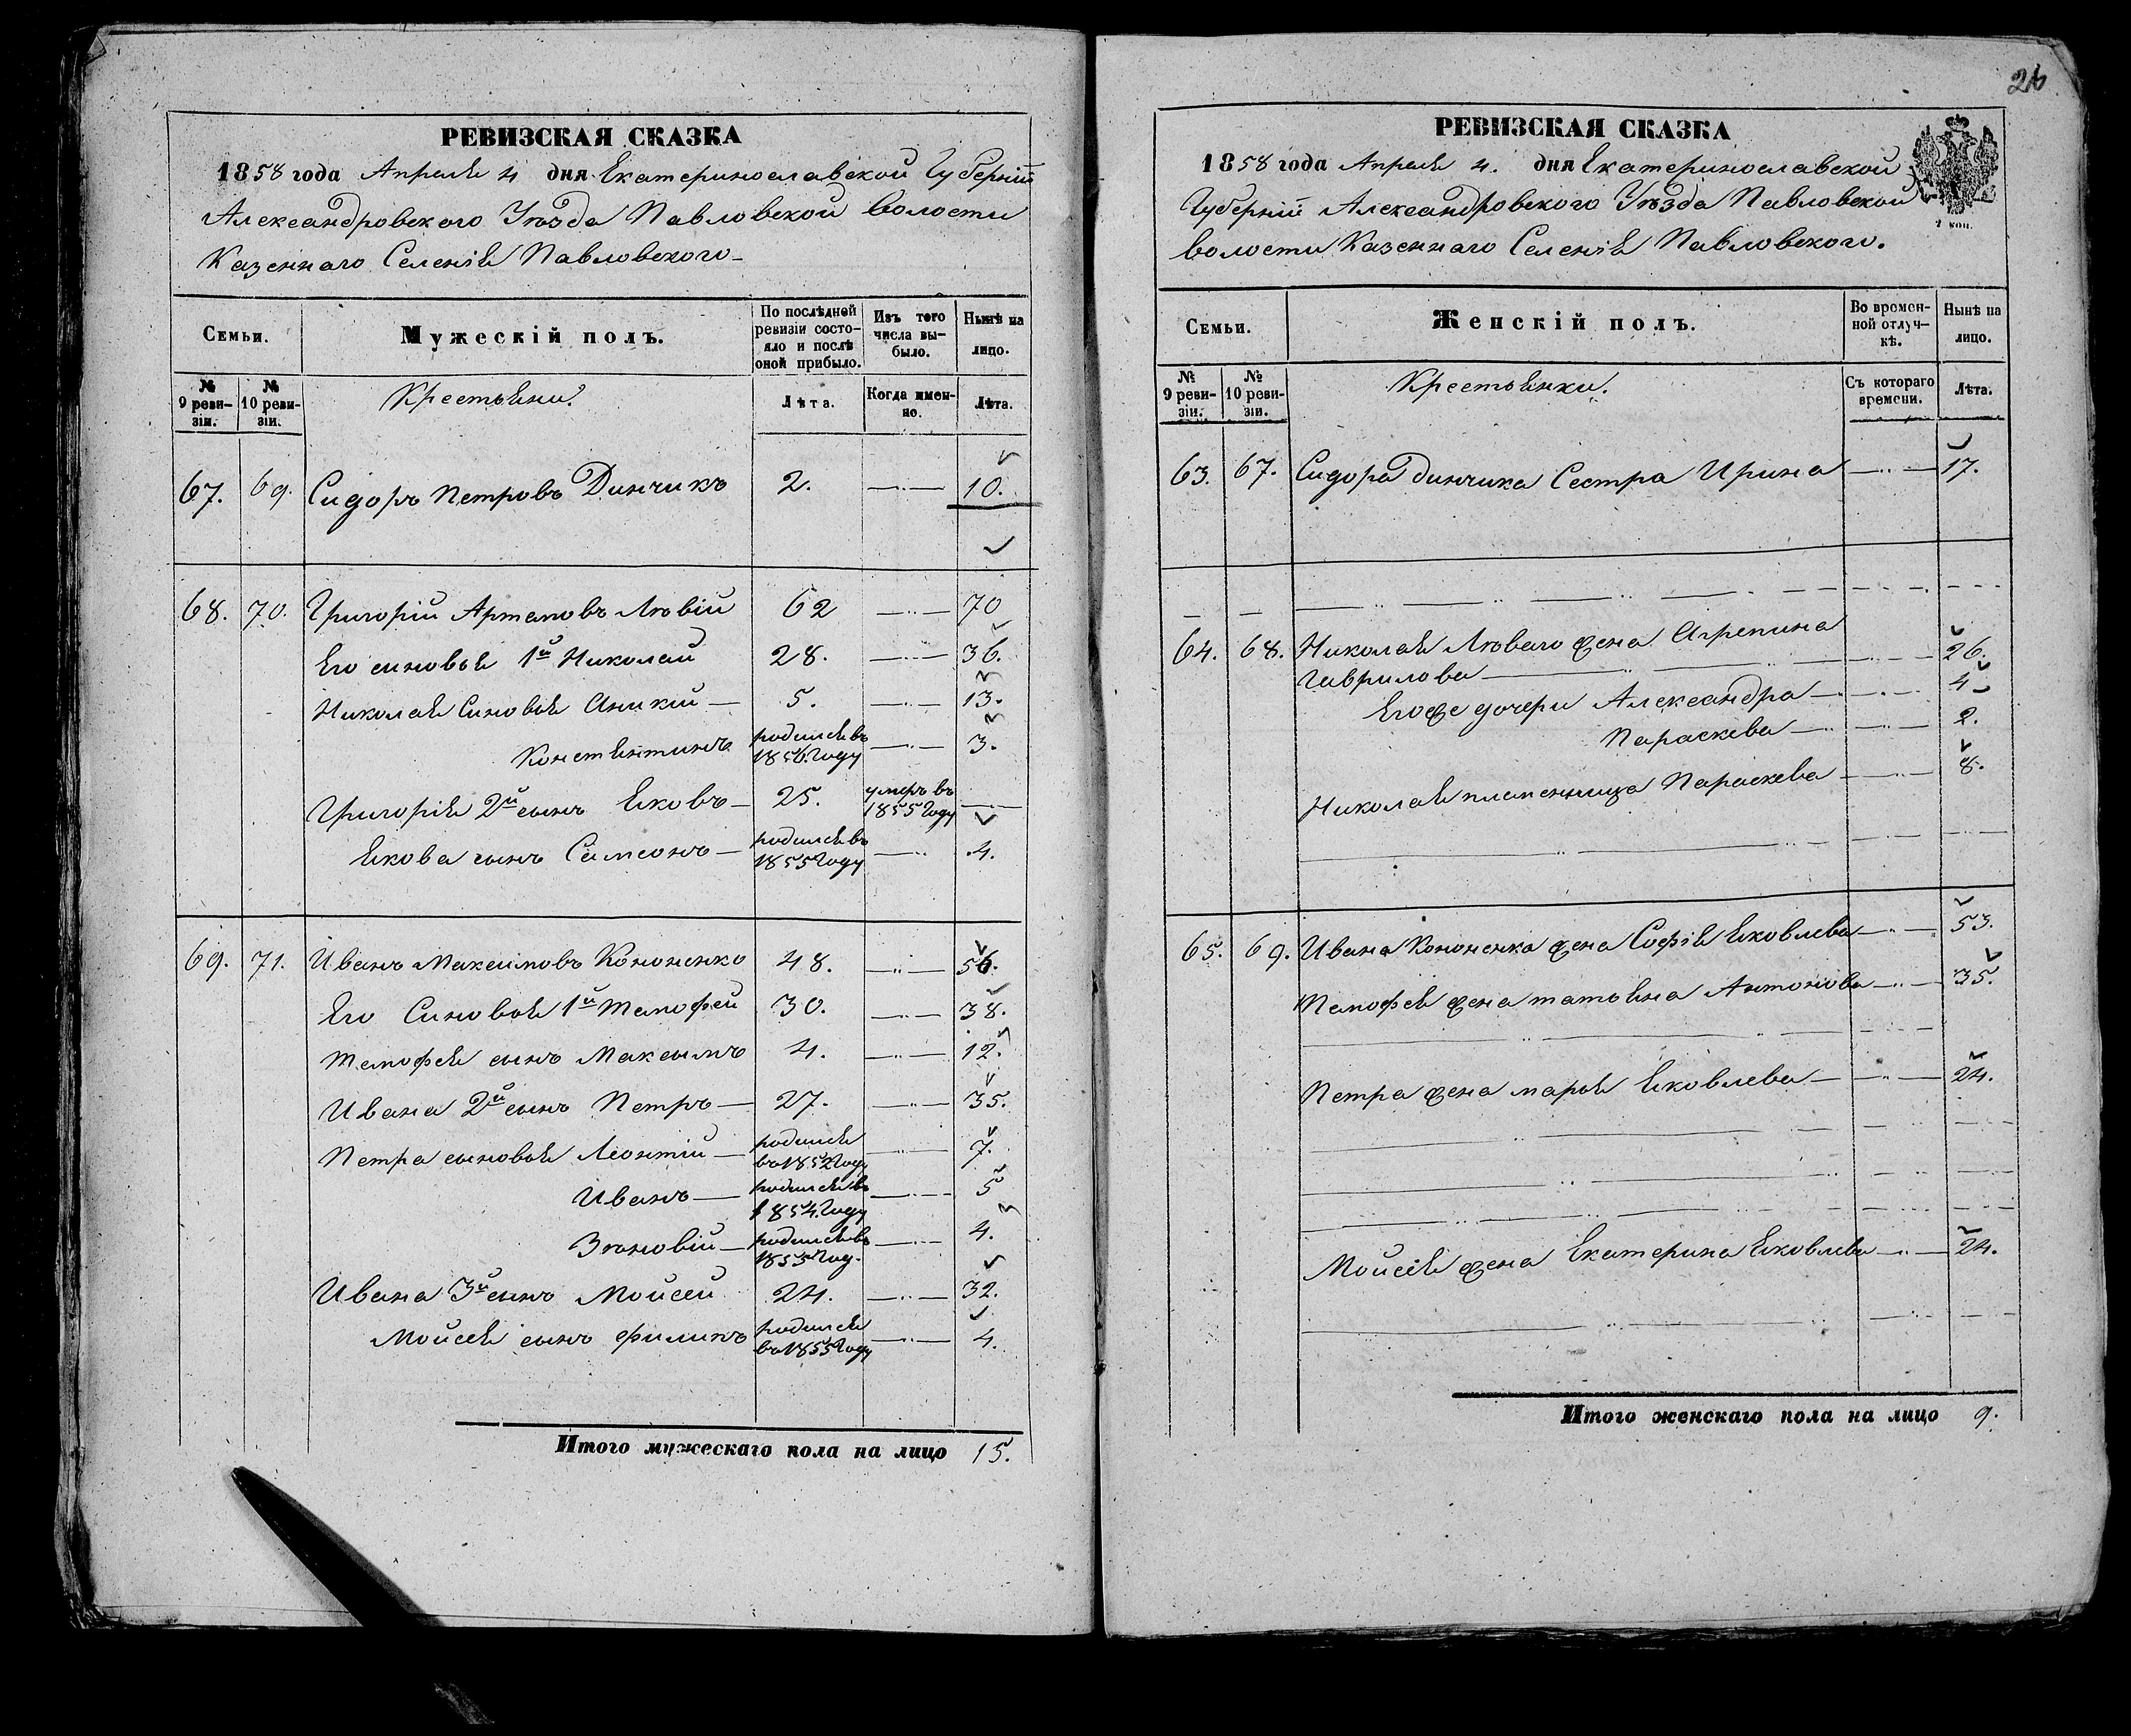 РЕВИЗСКАЯ СКАЗКА
1858 года Апреля 4 дня Екатеринославской Губерніи
Александровского Уѣзда Павловской волости
Казеннаго Селенія Павловского
Семьи.
Мужескій полъ.
По послѣдней ревизіи состояло и послѣ оной прибыло.
Изъ того числа выбыло.
Нынѣ на лицо.
№ 9 ревизіи.
№ 10 ревизіи.
Крестьяни.
Лѣта.
Когда именно.
Лѣта.
67. 69. Сидоръ Петровъ Динчикъ 2. 10.
68. 70. Григорій Артемовъ Лѣвій 62 70
Его синовья 1й Николай 28. 36.
Николая Синовья Аникій 5. 13.
Констянтинъ родился въ 1856 году 3.
Григорія 2й сынъ Яковъ 25. умеръ въ 1855 году
Якова сынъ Самсонъ родился въ 1855 году 4.
69. 71. Иванъ Максимовъ Кононенко 48. 56.
Его Синовья 1й Темофей 30. 38.
Темофея сынъ Максымъ 4. 12.
Ивана 2й сынъ Петръ 27. 35.
Петра сыновья Леонтій родился въ 1852 году 7.
Иванъ родился въ 1854 году 5
Зѣновій родился въ 1855 год. 4.
Ивана 3й сынъ Мойсей 24. 32.
Мойсея сынъ Филипъ родился въ 1855 году 4.
Итого мужескаго пола на лицо 15.
26
РЕВИЗСКАЯ СКАЗКА
1858 года Апреля 4. дня Екатеринославской
Губерніи Александровского Уѣзда Павловской
волости Казеннаго Селенія Павловского.
2 коп.
Семьи.
Женскій полъ.
Во временной отлучкѣ.
Нынѣ на лицо.
№ 9 ревизіи.
№ 10 ревизіи.
Крестьянки.
Съ котораго времени.
Лѣта.
63. 67. Сидора Динчика Сестра Ирина 17.
64. 68. Николая Лѣваго жена Агрепина
Гаврилова 26.
Егоже дочери Александра 4
Параскева 2.
Николая племенница Параскева 8.
65. 69. Ивана Кононенка жена Софія Яковлева 53.
Темофея жена татьяна Антонова 35.
Петра жена марья Яковлева 24.
Мойсея жена Екатерина Яковлева 24.
Итого женскаго пола на лицо 9.